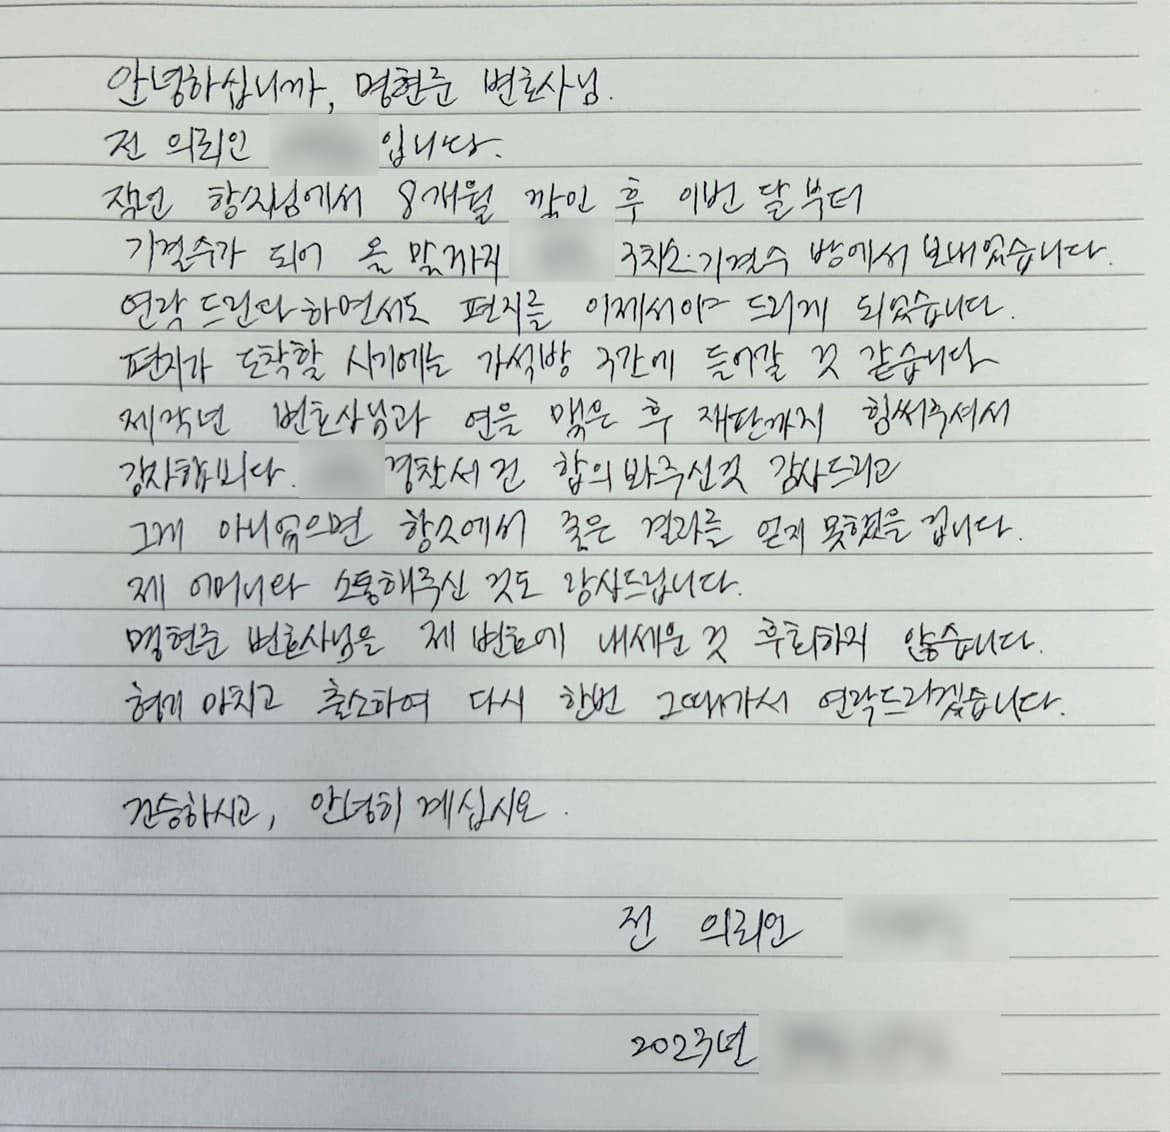 안녕하십니까, 명현준 변호사님.
전 의뢰인 입니다.
작년 항소심에서 8개월 깎인 후 이번 달부터
기결수가 되어 올 말까지 구치소 기결수 방에서 보내었습니다.
연락 드린다 하면서도 편지를 이제서야 드리게 되었습니다.
편지가 도착할 시기에는 가석방 구간에 들어갈 것 같습니다
제작년 변호사님과 연을 맺은 후 재판까지 힘써주셔서
감사합니다. 경찰서 건 합의 봐주신것 감사드리고
그게 아니었으면 항소에서 좋은 결과를 얻지 못했을 겁니다.
제 어머니와 소통해주신 것도 감사드립니다.
명현준 변호사님을 제 변호에 내세운 것 후회하지 않습니다.
형기 마치고 출소하여 다시 한번 그때가서 연락드리겠습니다.
건승하시고, 안녕히 계십시오.
전 의뢰인
2023년